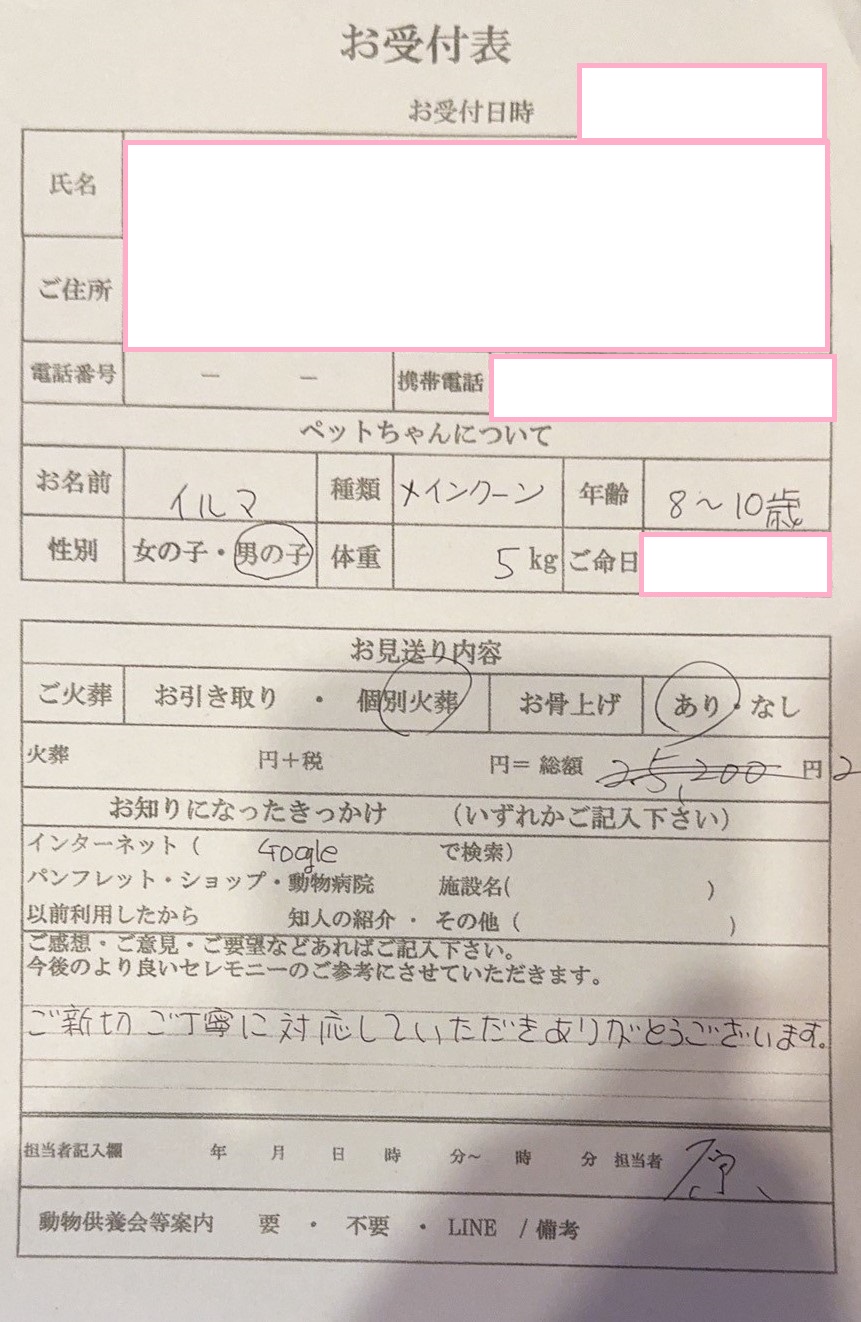 お受付表
お受付日時
氏名
ご住所
電話番号 － － 携帯電話
ペットちゃんについて
お名前 イルマ 種類 メインクーン 年齢 8～10歳
性別 女の子・男の子 体重 5 kg ご命日
お見送り内容
ご火葬 お引き取り ・ 個別火葬 お骨上げ あり・なし
火葬 円＋税 円＝ 総額 25,200 円 2
お知りになったきっかけ （いずれかご記入下さい）
インターネット（ Google で検索）
パンフレット・ショップ・動物病院 施設名( )
以前利用したから 知人の紹介 ・ その他（ ）
ご感想・ご意見・ご要望などあればご記入下さい。
今後のより良いセレモニーのご参考にさせていただきます。
ご新切ご丁寧に対応していただきありがとうございます。
担当者記入欄 年 月 日 時 分～ 時 分 担当者
動物供養会等案内 要 ・ 不要 ・ LINE / 備考